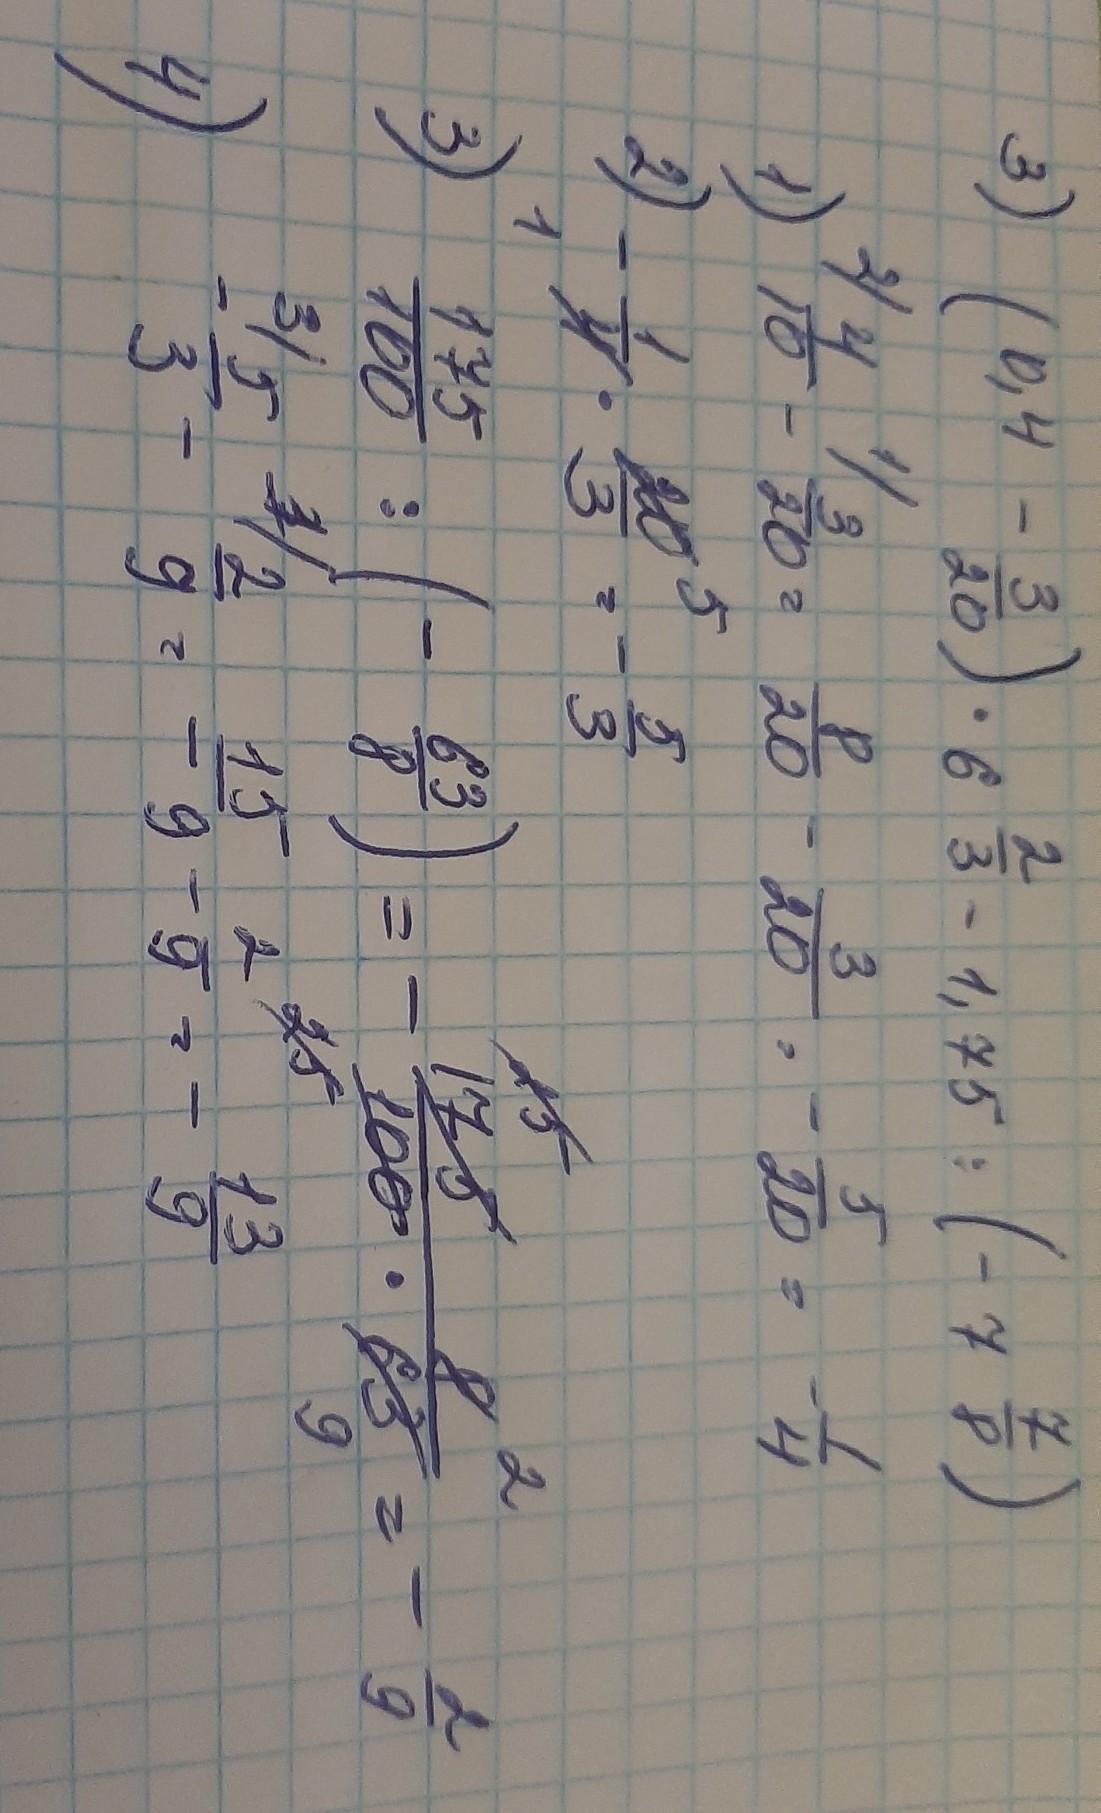 3) (0,4 - 3/20) · 6 2/3 - 1,75 : (-7 7/8)
1) 2/ 4/10 - 1/ 3/20 = 8/20 - 3/20 = - 5/20 = - 1/4
2) - 1/4 · 20/3 = - 5/3
1 5
3) 175/100 : (- 63/8) = - 175 · 8 / 100 · 63 = - 2/9
25 2 9
4) 3/ - 5/3 - 1/ 2/9 = - 15/9 - 2/9 = - 13/9